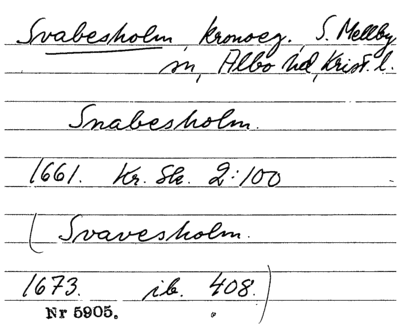 Svabesholm, kronoeg. S. Mellby
sn, Albo hd, Krist. l.
Snabesholm.
1661. Kr. Sk. 2:100
(Svavesholm.
1673. ib. 408.)
Nr 5905. "